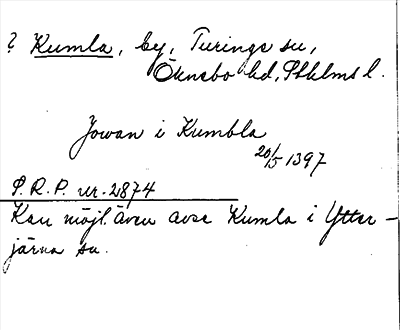 ? Kumla, by, Turinge sn,
Öknebo hd, Sthlms l.
Jowan i Kumbla
20/5 1397
S.R.P. nr. 2874
Kan möjl. även avse Kumla i Ytter-
järna sn.